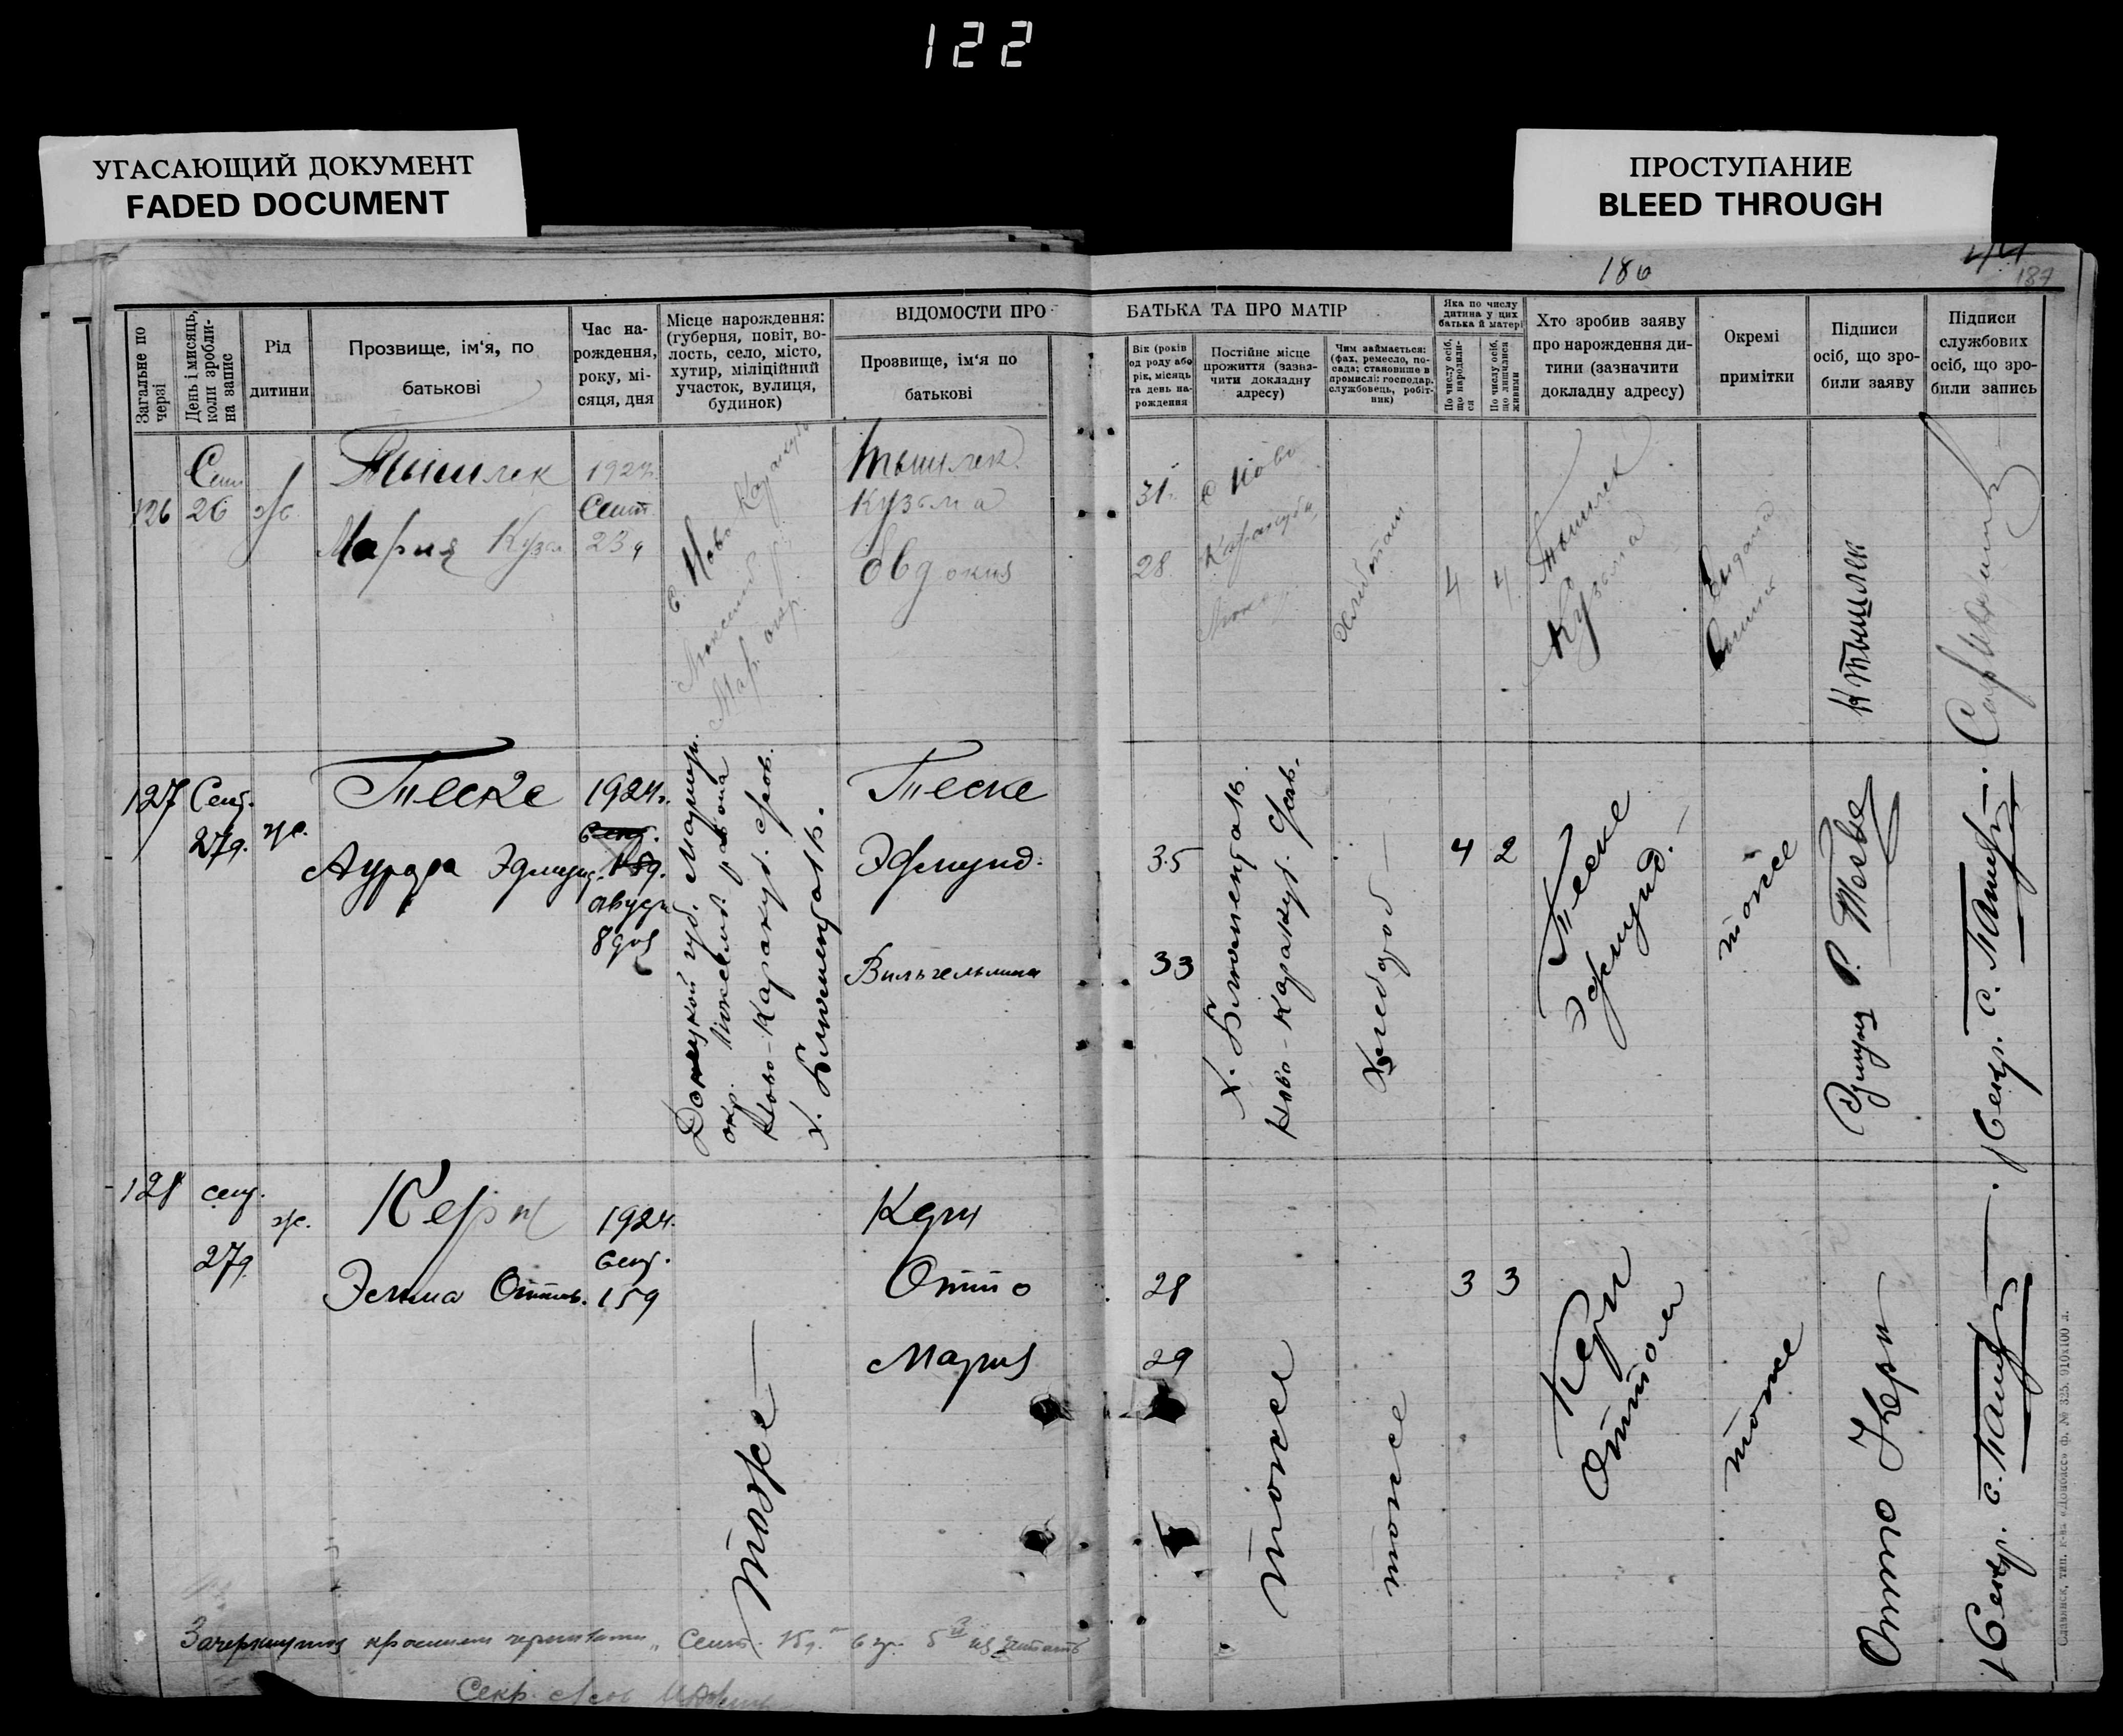 122
УГАСАЮЩИЙ ДОКУМЕНТ
FADED DOCUMENT
ПРОСТУПАНИЕ
BLEED THROUGH
186
44
187
Загальне по черзі
День і мисяць, коли зробли- на запис
Рід дитини
Прозвище, ім'я, по батькові
Час на- рождення, року, мі- сяця, дня
Місце нарождення: (губерня, повіт, во- лость, село, місто, хутир, міліційний участок, вулиця, будинок)
ВІДОМОСТИ ПРО БАТЬКА ТА ПРО МАТІР
Прозвище, ім'я по батькові
Вік (років од роду або рік, місяць та день на- рождення
Постійне місце прожиття (зазна- чити докладну адресу)
Чим займається: (фах, ремесло, по- сада; становище в промислі: господар, службовець, робіт- ник)
Яка по числу дитина у цих батька й матері
По числу осіб, що народили- ся
По числу осіб, що лишилися живими
Хто зробив заяву про нарождення ди- тини (зазначити докладну адресу)
Окремі примітки
Підписи осіб, що зро- били заяву
Підписи службових осіб, що зро- били запись
126
Сент
26
ж
Тышлек
Мария Кузм
1924г.
Сент
23 д
с. Ново Каракуба
Мар. окр.
Тышлек
Кузьма
Евдокия
31
28
с Ново
Каракуба
4
4
Тышлек
Кузьма
К Тышлек
127
Сент.
27д.
ж.
Теске
Аурора Эдмунд.
1924г.
Сент.
15д.
август
8 дня
Донецкой губ. Мариуп.
окр. района
Ново-Каракуб.
х. Блюменталь.
Теске
Эдмунд.
Вильгельмина
35
33
х. Блюменталь.
Ново-Каракуб.
Хлебороб —
4
2
Теске
Эдмунд. —
тоже
Эдмунд Р. Теске
128
сент.
27д
ж.
Керн
Эмма Оттов.
1924.
сент.
15д
тоже —
Керн
Отто
Мария
28
29
тоже
тоже
3
3
Керн
Оттом
тоже
Отто Керн
Славянск, тип. к-ва «Донбасс» ф. № 325. 910х100 л.
Зачеркнутое красными чернилами „Сент. 15д.“ в гр. 5й не читать
Секр.